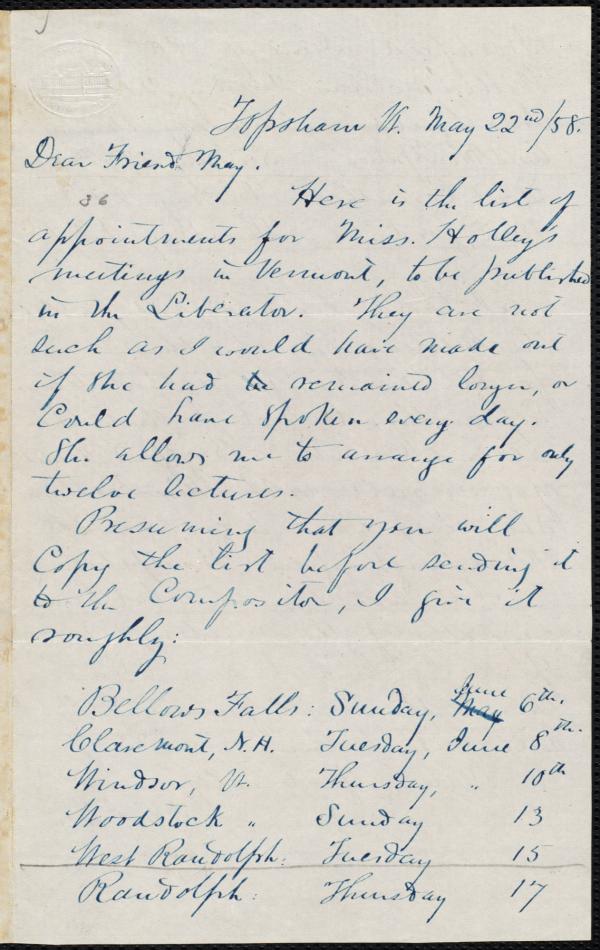 Topsham Vt. May 22nd/58.
Dear Friend May.
36
Here is the list of
appointments for Miss. Holley's
meetings in Vermont, to be published
in the Liberator. They are not
such as I would have made out
if she had remained longer, or
Could have spoken every day.
She allows me to arrange for only
twelve lectures.
Presuming that you will
Copy the list before sending it
to the Compositor, I give it
roughly:
Bellows Falls: Sunday, May June 6th.
Claremont, N.H. Tuesday, June 8th.
Windsor, Vt. Thursday, " 10th
Woodstock " Sunday 13
West Randolph: Tuesday 15
Randolph: Thursday 17